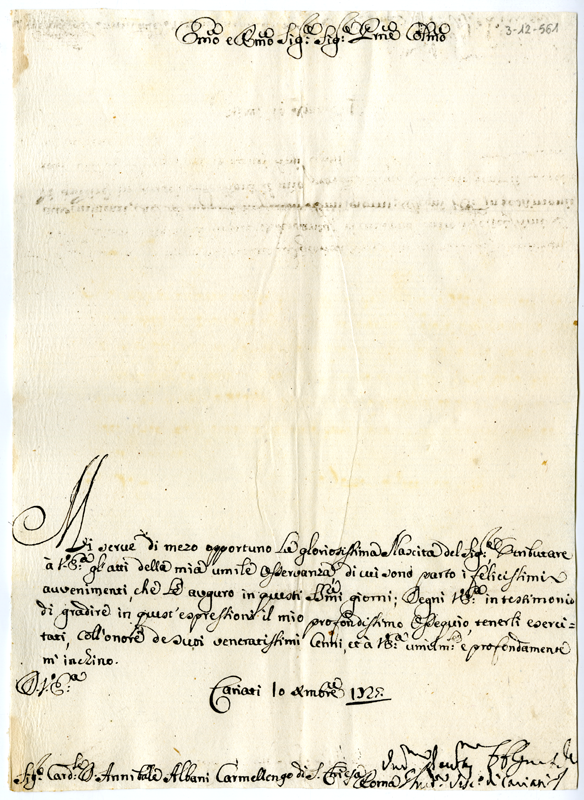 3-12-561
Emo e Rmo Sig.e Sig.e Prne Colmo
Mi serve di mezo opportuno La gloriosissima Nascita del Sig.e
à V.Em.a gli atti della mia umile osservanza, di cui sono parto i felicissimi
avvenimenti, che Le auguro in questi giorni; Degni V.Em.a in testimonio
di gradire in quest'espressioni il mio profondissimo ossequio, tenerlo eserci=
tato, coll'onore de suoi veneratissimi Cenni, et à V.Em.a umilm.te e profondamente
mi inchino.
D.V.Em.a
Cariati 10 Xmbre 1725.
Sig.e Card.le D. Annibale Albani Carmellengo di S. Chiesa Roma